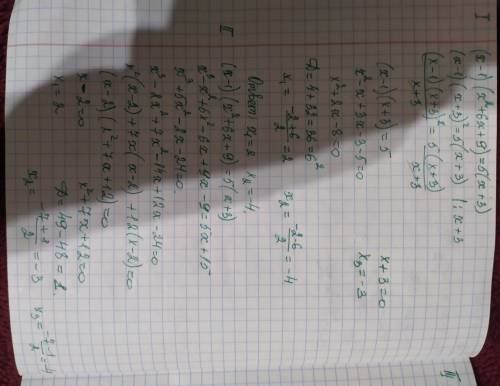 I
(x-1)(x²+6x+9)=5(x+3)
(x-1)(x+3)²=5(x+3) | : x+3
(x-1)(x+3)²/x+3 = 5(x+3)/x+3
(x-1)(x+3)=5 x+3=0
x²-x+3x-3-5=0 x₃=-3
x²+2x-8=0
D=4+32=36=6²
x₁= -2+6/2=2 x₂= -2-6/2=-4
Ответ x₁=2 x₂=-4,
II
(x-1)(x²+6x+9)=5(x+3)
x³-x²+6x²-6x+9x-9=5x+15
x³+5x²-2x-24=0
x³-2x²+7x²-14x+12x-24=0
x²(x-2)+7x(x-2)+12(x-2)=0
(x-2)(x²+7x+12)=0
x-2=0 x²+7x+12=0
x₁=2 D=49-48=1
x₂= -7+1/2=-3 x₃= -7-1/2=-4
III